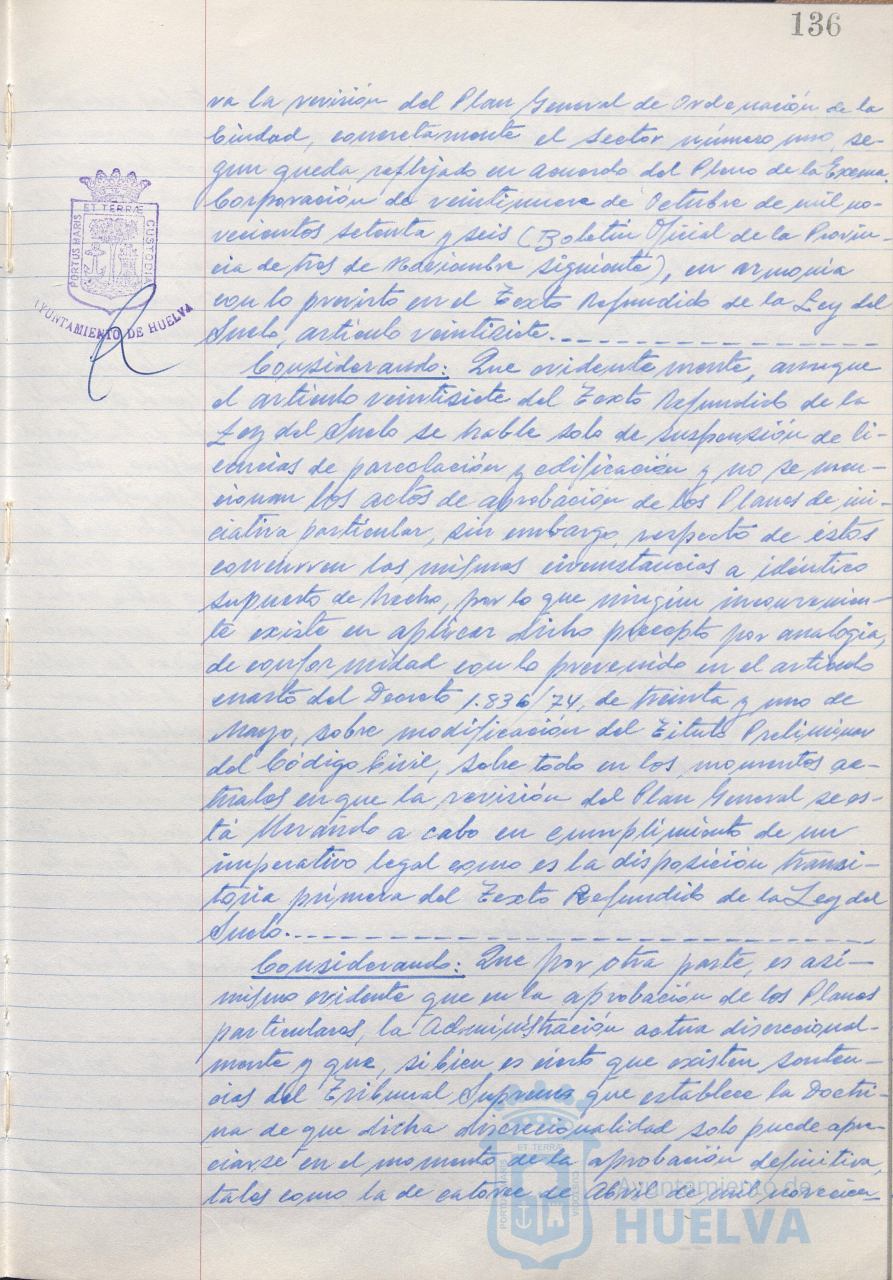 136
va la revisión del Plan General de Ordenación de la
Ciudad, concretamente el sector número uno, se-
gun queda reflejado en acuerdo del Pleno de la Excma.
Corporación de veintinueve de Octubre de mil no-
vecientos setenta y seis (Boletín Oficial de la Provin-
cia de tres de Noviembre siguiente), en armonía
con lo previsto en el Texto Refundido de la Ley del
Suelo, artículo veintisiete.
Considerando: Que evidentemente, aunque
el artículo veintisiete del Texto Refundido de la
Ley del Suelo se hable solo de suspensión de li-
cencias de parcelación y edificación y no se men-
cionan los actos de aprobación de los Planes de ini-
ciativa particular, sin embargo, respecto de éstos
concurren las mismas circunstancias a idéntico
supuesto de hecho, por lo que ningún inconvenien-
te existe en aplicar dicho precepto por analogía,
de conformidad con lo prevenido en el artículo
cuarto del Decreto 1.836/74, de treinta y uno de
Mayo, sobre modificación del Título Preliminar
del Código Civil, sobre todo en los momentos ac-
tuales en que la revisión del Plan General se es-
tá llevando a cabo en cumplimiento de un
imperativo legal como es la disposición transi-
toria primera del Texto Refundido de la Ley del
Suelo.
Considerando: Que por otra parte, es así-
mismo evidente que en la aprobación de los Planes
particulares, la Administración actua discrecional-
mente y que, si bien es cierto que existen senten-
cias del Tribunal Supremo que establece la Doctri-
na de que dicha discrecionalidad solo puede apre-
ciarse en el momento de la aprobación definitiva,
tales como la de catorce de Abril de mil novecien-
PORTUS MARIS ET TERRÆ CUSTODIA
AYUNTAMIENTO DE HUELVA
PORTUS MARIS ET TERRÆ CUSTODIA
Ayuntamiento de
HUELVA